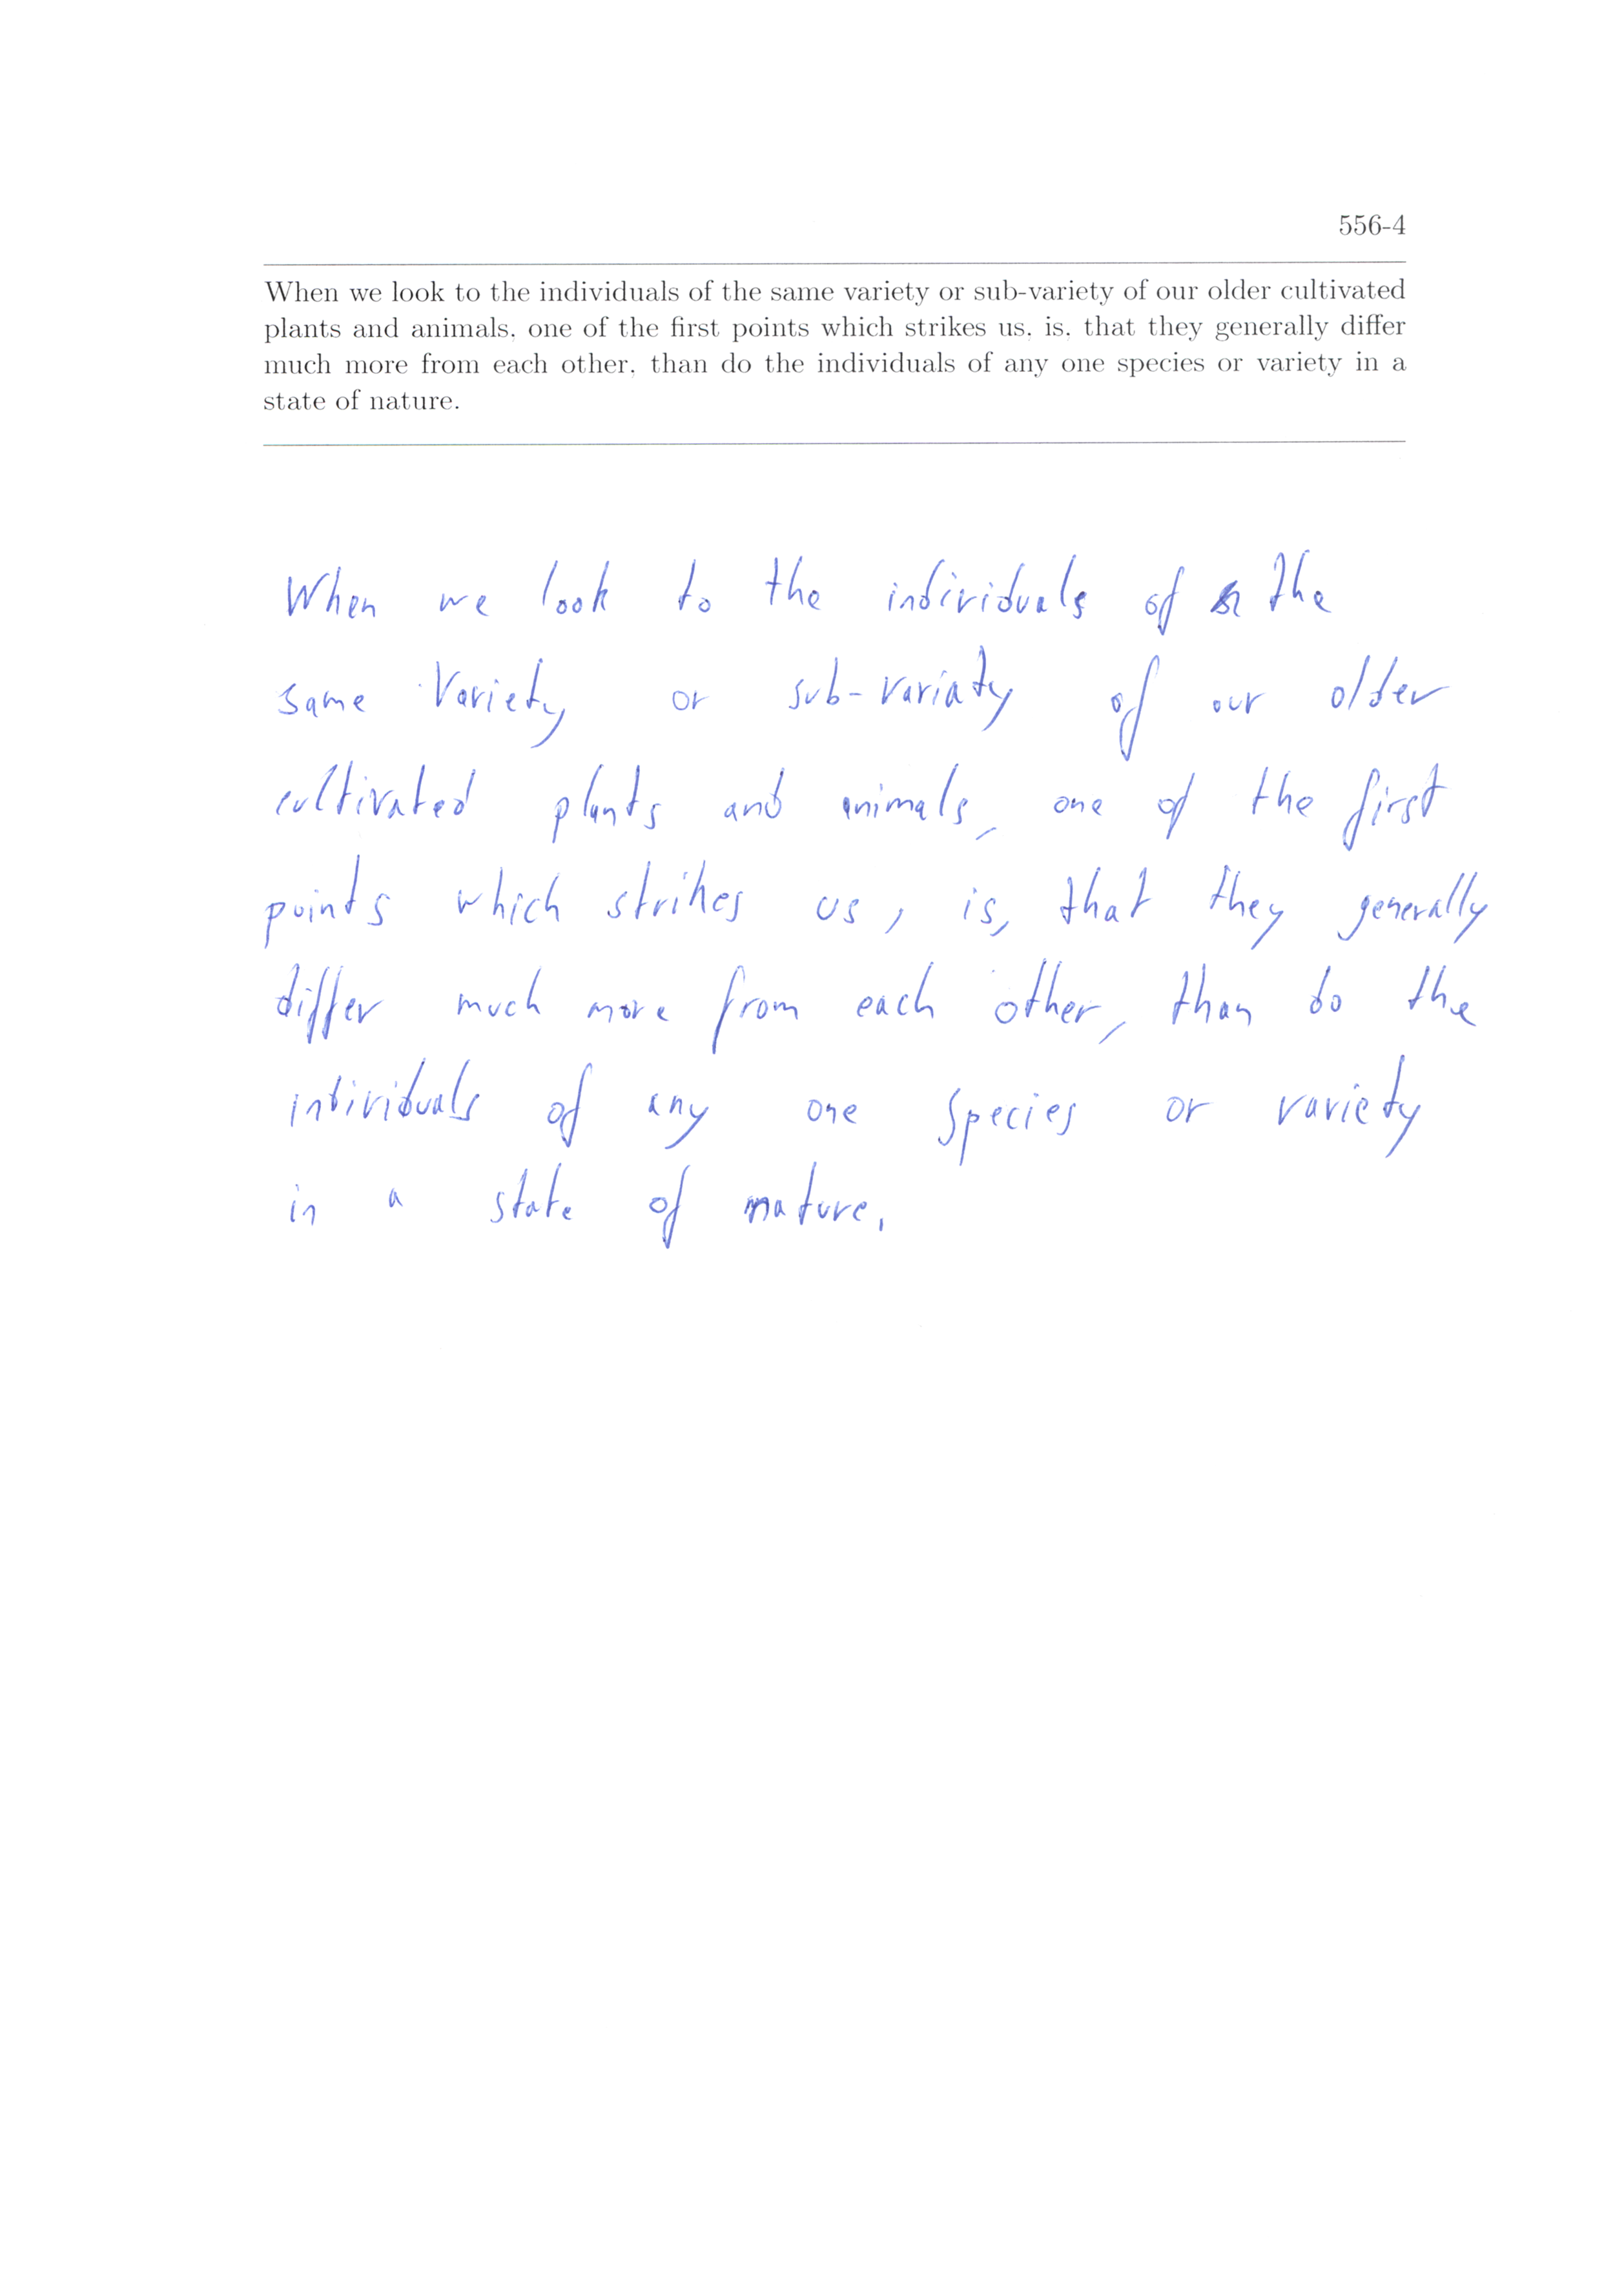 556-4
When we look to the individuals of the same variety or sub-variety of our older cultivated
plants and animals, one of the first points which strikes us, is, that they generally differ
much more from each other, than do the individuals of any one species or variety in a
state of nature.
When we look to the individuals of the
same Variety or sub-variaty of our older
cultivated plants and animals, one of the first
points which strikes us, is, that they generally
differ much more from each other, than do the
individuals of any one species or variety
in a state of nature.